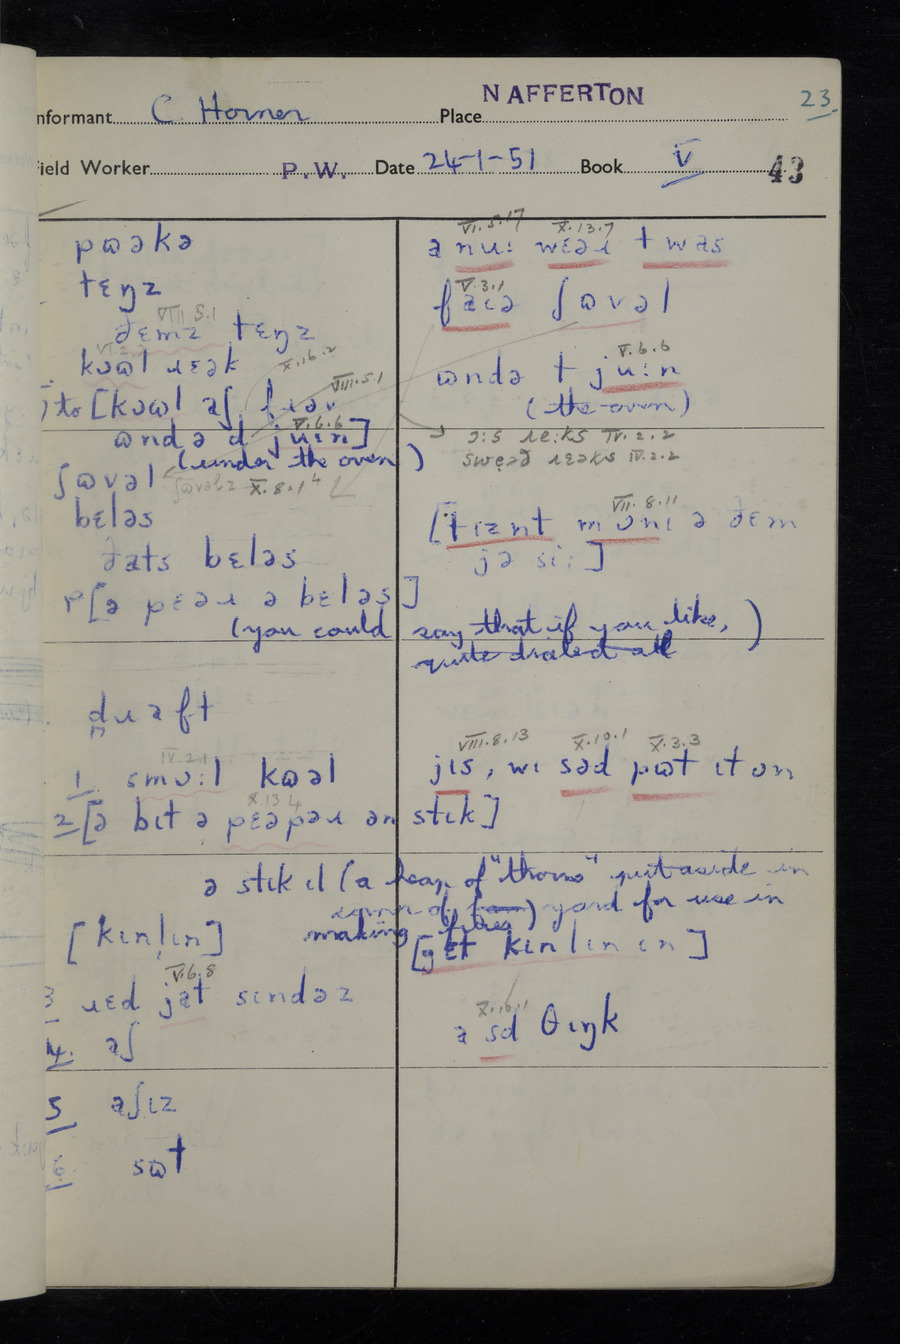 NAFFERTON
23
nformant C. Horner Place
ield Worker P.W. Date 24-1-51 Book V 43
pʊəkə
tɛŋz
VIII.5.1
ðɛmz tɛŋz
kɔʊl ɹɛək
X.16.2
VIII.5.1
to [kɔʊl aʃ
V.6.6
ʊndə d juːn]
(under the oven)
ʃʊvəl
ʃʊvəlz X.8.1
bɛləs
ðats bɛləs
[ə pɛəɹ ə bɛləs]
(you could say that if you like,)
dɹaft
IV.2.1
1. smɔːl kʊəl
X.13
2 [ə bɪt ə pɛəpəɹ ən stɪk]
ə stɪk (a heap of "thorns" put aside in
corner of yard for use in
making fires)
[kɪnlɪn]
V.6.8
3 ɹɛd jat sɪndəz
4. aʃ
5 aʃɪz
6 sʊt
VI.5.17 X.13.7
a nuː wɛəɹ t was
V.3.1
ʃʊvəl
V.6.6
ʊndə t juːn
(the oven)
ɔːs ɹeːks IV.2.2
ɹɛəks IV.2.2
VII.8.11
[tɪznt mɔnɪ ə ðɛm
jə siː]
VIII.8.13 X.10.1 X.3.3
jɪs, wɪ səd pʊt ɪt ɔn
[gɛt kɪnlɪn ɪn]
X.10.1
a sd θɪŋk